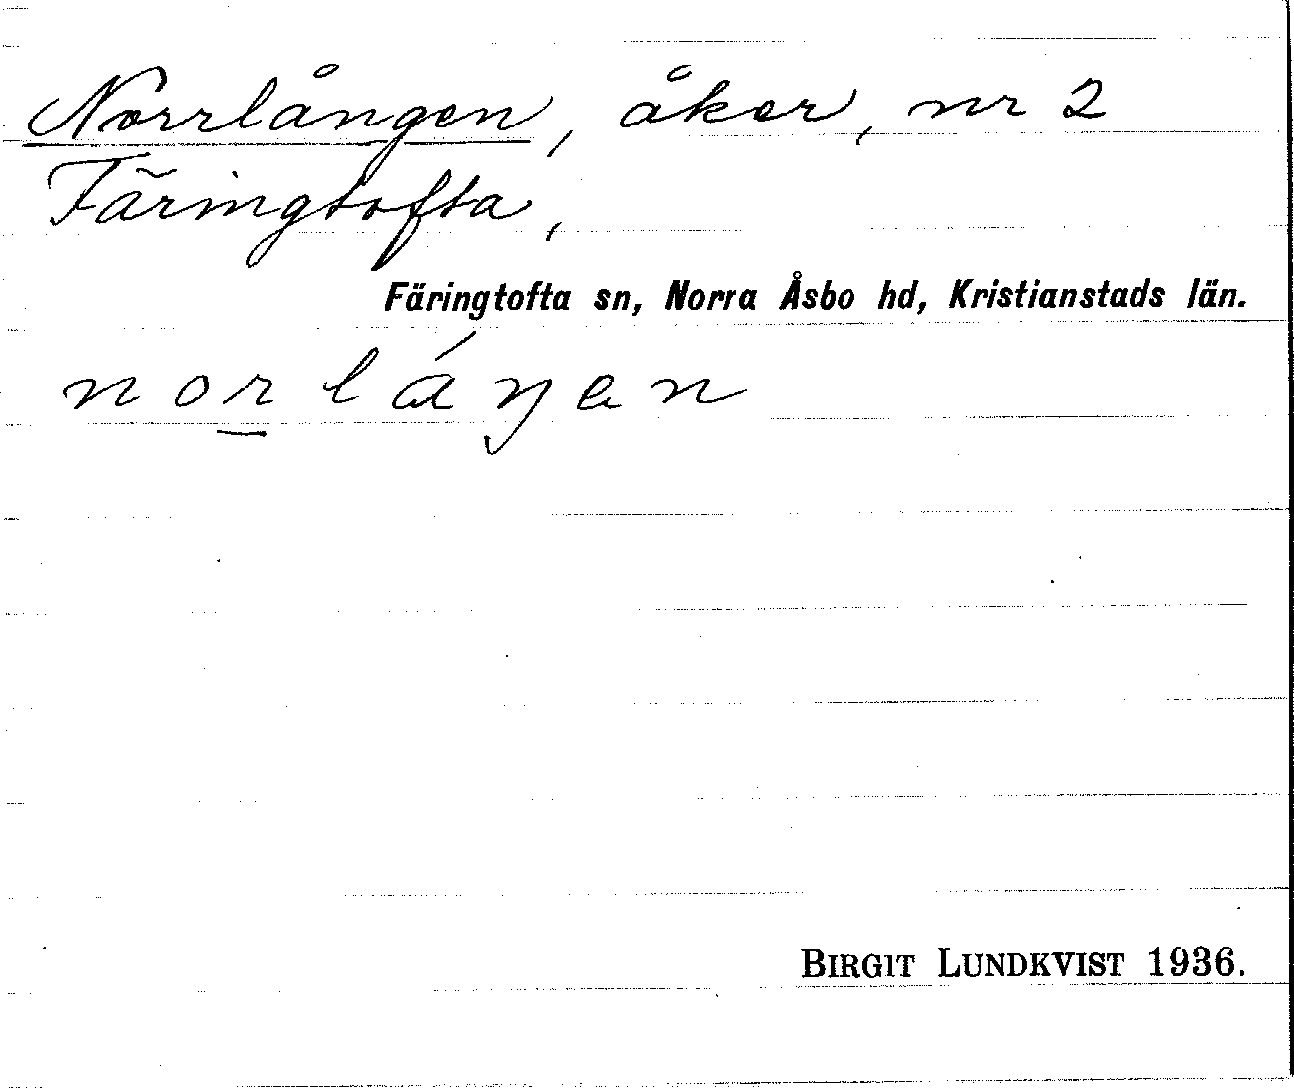 Norrlången, åker, nr 2
Färingtofta,
Färingtofta sn, Norra Åsbo hd, Kristianstads län.
norláŋen
BIRGIT LUNDKVIST 1936.